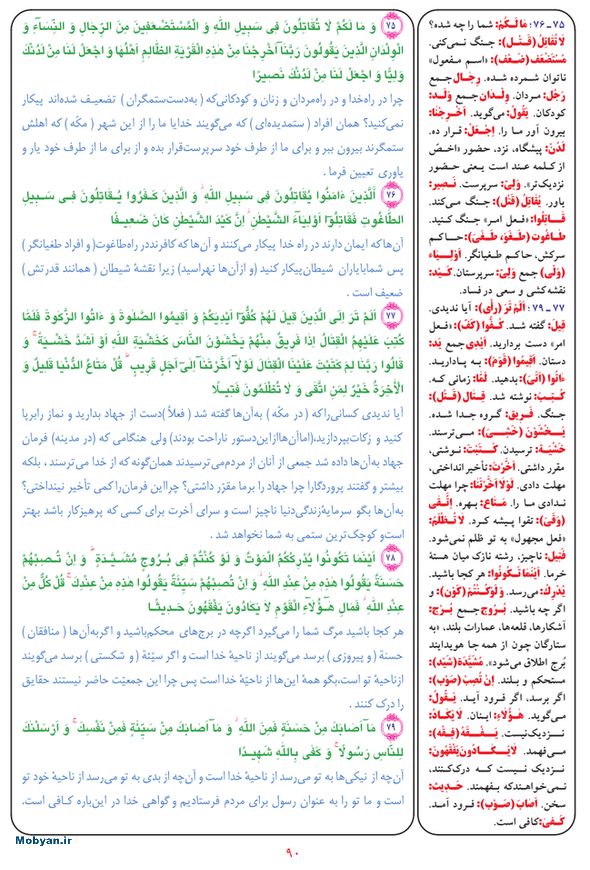 ۷۵
وَ مَا لَکُمْ لَا تُقَاتِلُونَ فِی سَبِیلِ اللهِ وَ الْمُسْتَضْعَفِینَ مِنَ الرِّجَالِ وَ النِّسَآءِ وَ
الْوِلْدَانِ الَّذِینَ یَقُولُونَ رَبَّنَآ اَخْرِجْنَا مِنْ هٰذِهِ الْقَرْیَةِ الظَّالِمِ اَهْلُهَا وَ اجْعَلْ لَنَا مِنْ لَدُنْکَ
وَلِیًّا وَ اجْعَلْ لَنَا مِنْ لَدُنْکَ نَصِیرًا
چرا در راه‌خدا و در راه‌مردان و زنان و کودکانی‌که ( به‌دست‌ستمگران ) تضعیف شده‌اند پیکار
نمی‌کنید؟ همان افراد ( ستمدیده‌ای ) که می‌گویند خدایا ما را از این شهر ( مکّه ) که اهلش
ستمگرند بیرون ببر و برای ما از طرف خود سرپرست‌قرار بده و از برای ما از طرف خود یار و
یاوری تعیین فرما .
۷۶
اَلَّذِینَ ءَامَنُوا یُقَاتِلُونَ فِی سَبِیلِ اللهِ ۖ وَ الَّذِینَ کَفَرُوا یُقَاتِلُونَ فِی سَبِیلِ
الطَّاغُوتِ فَقَاتِلُوٓا اَوْلِیَآءَ الشَّیْطٰنِ ۖ اِنَّ کَیْدَ الشَّیْطٰنِ کَانَ ضَعِیفًا
آن‌ها که ایمان دارند در راه خدا پیکار می‌کنند و آن‌ها که کافرنددر راه‌طاغوت(و افراد طغیانگر )
پس شمابایاران شیطان‌پیکار کنید (و ازآن‌ها نهراسید) زیرا نقشهٔ شیطان ( همانند قدرتش )
ضعیف است .
۷۷
اَلَمْ تَرَ اِلَی الَّذِینَ قِیلَ لَهُمْ کُفُّوٓا اَیْدِیَکُمْ وَ اَقِیمُوا الصَّلٰوةَ وَ ءَاتُوا الزَّکٰوةَ فَلَمَّا
کُتِبَ عَلَیْهِمُ الْقِتَالُ اِذَا فَرِیقٌ مِنْهُمْ یَخْشَوْنَ النَّاسَ کَخَشْیَةِ اللهِ اَوْ اَشَدَّ خَشْیَةً ۚ وَ
قَالُوا رَبَّنَا لِمَ کَتَبْتَ عَلَیْنَا الْقِتَالَ لَوْلَآ اَخَّرْتَنَآ اِلٰیٓ اَجَلٍ قَرِیبٍ ۗ قُلْ مَتَاعُ الدُّنْیَا قَلِیلٌ وَ
الْاٰخِرَةُ خَیْرٌ لِمَنِ اتَّقٰی وَ لَا تُظْلَمُونَ فَتِیلًا
آیا ندیدی کسانی‌راکه ( در مکّه ) به‌آن‌ها گفته شد ( فعلاً )دست از جهاد بدارید و نماز رابرپا
کنید و زکات‌بپردازید،(اماآن‌هاازاین‌دستور ناراحت بودند) ولی هنگامی که (در مدینه) فرمان
جهاد به‌آن‌ها داده شد جمعی از آنان از مردم‌می‌ترسیدند همان‌گونه که از خدا می‌ترسند ، بلکه
بیشتر و گفتند پروردگارا چرا جهاد را برما مقرّر داشتی؟ چرااین فرمان‌را کمی تأخیر نینداختی؟
به‌آن‌ها بگو سرمایهٔ‌زندگی‌دنیا ناچیز است و سرای آخرت برای کسی که پرهیزکار باشد بهتر
است‌و کوچک‌ترین ستمی به شما نخواهد شد .
۷۸
اَیْنَمَا تَکُونُوا یُدْرِکْکُمُ الْمَوْتُ وَ لَوْ کُنْتُمْ فِی بُرُوجٍ مُشَیَّدَةٍ ۗ وَ اِنْ تُصِبْهُمْ
حَسَنَةٌ یَقُولُوا هٰذِهِ مِنْ عِنْدِ اللهِ ۖ وَ اِنْ تُصِبْهُمْ سَیِّئَةٌ یَقُولُوا هٰذِهِ مِنْ عِنْدِکَ ۚ قُلْ کُلٌّ مِنْ
عِنْدِ اللهِ ۖ فَمَالِ هٰٓؤُلَآءِ الْقَوْمِ لَا یَکَادُونَ یَفْقَهُونَ حَدِیثًا
هر کجا باشید مرگ شما را می‌گیرد اگرچه در برج‌های محکم‌باشید و اگربه‌آن‌ها ( منافقان )
حسنة ( و پیروزی ) برسد می‌گویند از ناحیهٔ خدا است و اگر سیّئة ( و شکستی ) برسد می‌گویند
ازناحیهٔ تو است،بگو همهٔ این‌ها از ناحیهٔ خدا است پس چرا این جمعیّت حاضر نیستند حقایق
را درک کنند .
۷۹
مَآ اَصَابَکَ مِنْ حَسَنَةٍ فَمِنَ اللهِ ۖ وَ مَآ اَصَابَکَ مِنْ سَیِّئَةٍ فَمِنْ نَفْسِکَ ۚ وَ اَرْسَلْنٰکَ
لِلنَّاسِ رَسُولًا ۚ وَ کَفٰی بِاللهِ شَهِیدًا
آن‌چه از نیکی‌ها به تو می‌رسد از ناحیهٔ خدا است و آن‌چه از بدی به تو می‌رسد از ناحیهٔ خود تو
است و ما تو را به عنوان رسول برای مردم فرستادیم و گواهی خدا در این‌باره کافی است .
۷۵ ـ ۷۶: مَا لَکُمْ: شما را چه شده؟
لَا تُقَاتِلُ (قَتَلَ): جنگ نمی‌کنی.
مُسْتَضْعَف (ضَعُفَ): «اسم مفعول»
ناتوان شمرده شده. رِجَال جمع
رَجُل: مردان. وِلْدَان جمع وَلَد:
کودکان. یَقُولُ: می‌گوید. اَخْرِجْنَا:
بیرون آور ما را. اِجْعَلْ: قرار ده.
لَدُنْ: پیشگاه، نزد، حضور «اخصّ
از کلمه عند است یعنی حضور
نزدیک‌تر». وَلِیّ: سرپرست. نَصِیر:
یاور. یُقَاتِلُ (قَتَلَ): جنگ می‌کند.
قَاتِلُوا: «فعل امر» جنگ کنید.
طاغوت (طَغَوَ، طَغَیَ): حاکم
سرکش، حاکم طغیانگر. اَوْلِیَاء
(وَلَی) جمع وَلِیّ: سرپرستان. کَیْد:
نقشه‌کشی و سعی در فساد.
۷۷ ـ ۷۹: اَلَمْ تَرَ (رأی): آیا ندیدی.
قِیلَ: گفته شد. کُفُّوا (کَفَّ): «فعل
امر» دست بردارید. اَیْدِی جمع یَد:
دستان. اَقِیمُوا (قَوَمَ): به پادارید.
ءَاتُوا (اَتَی): بدهید. لَمَّا: زمانی که.
کُتِبَ: نوشته شد. قِتَال (قَتَلَ):
جنگ. فَرِیق: گروه جدا شده.
یَخْشَوْنَ (خَشِیَ): می‌ترسند.
خَشْیَة: ترسیدن. کَتَبْتَ: نوشتی،
مقرر داشتی. اَخَّرْتَ: تأخیر انداختی،
مهلت دادی. لَوْلَا اَخَّرْتَنَا: چرا مهلت
ندادی ما را. مَتَاع: بهره. اِتَّقَی
(وَقَیَ): تقوا پیشه کرد. لَا تُظْلَمُ:
«فعل مجهول» به تو ظلم نمی‌شود.
فَتِیل: ناچیز، رشته نازک میان هستهٔ
خرما. اَیْنَمَا تَکُونُوا: هر کجا باشید.
یُدْرِکُ: می‌رسد. وَ لَوْ کُنْتُمْ (کَوَنَ): و
اگر چه باشید. بُرُوج جمع بُرْج:
آشکارها، قلعه‌ها، عمارات بلند، «به
ستارگان چون از همه جا هویدایند
بُرج اطلاق می‌شود». مُشَیَّدَة (شَیَدَ):
مستحکم و بلند. اِنْ تُصِبْ (صَوَبَ):
اگر برسد، اگر فرود آید. یَقُولُ:
می‌گوید. هٰؤُلَاءِ: اینان. لَا یَکَادُ:
نزدیک‌نیست. یَفْقَهُ (فَقِهَ):
می‌فهمد. لَا یَکَادُونَ یَفْقَهُونَ:
نزدیک نیست که درک‌کنند،
نمی‌خواهندکه بفهمند. حَدِیث:
سخن. اَصَابَ (صَوَبَ): فرود آمد.
کَفَیٰ: کافی است.
۹۰
Mobyan.ir